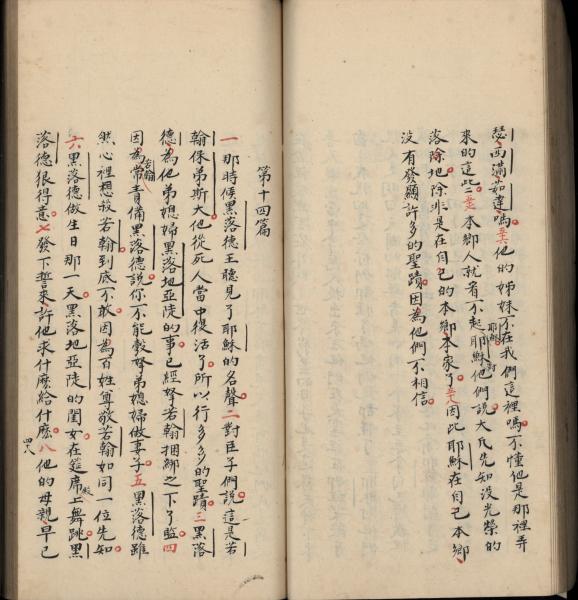 瑟西滿如達嗎五六他的姊妹不在我們這裡嗎不懂他是那裡弄
來的這些五七本鄉人就看不起耶穌耶穌對他們說大凡先知沒光榮的
落除地除非是在自己的本鄉本家了五八因此耶穌在自己本鄉
沒有發顯許多的聖蹟因為他們不相信
第十四篇
一那時候黑落德王聽見了耶穌的名聲二對臣子們說這是若
翰保弟斯大他從死人當中復活了所以行多多的聖蹟三黑落
德為他弟媳婦黑落地亞陡的事已經拏若翰捆綁之下了監四
因為若翰常責備黑落德說你不能彀拏弟媳婦做妻子五黑落德雖
然心裡想殺若翰到底不敢因為百姓尊敬若翰如同一位先知
六黑落德做生日那一天黑落地亞陡的閨女在筵席上舞跳黑
落德狠得意七發下誓來許他求什麽給什麽八他的母親早已